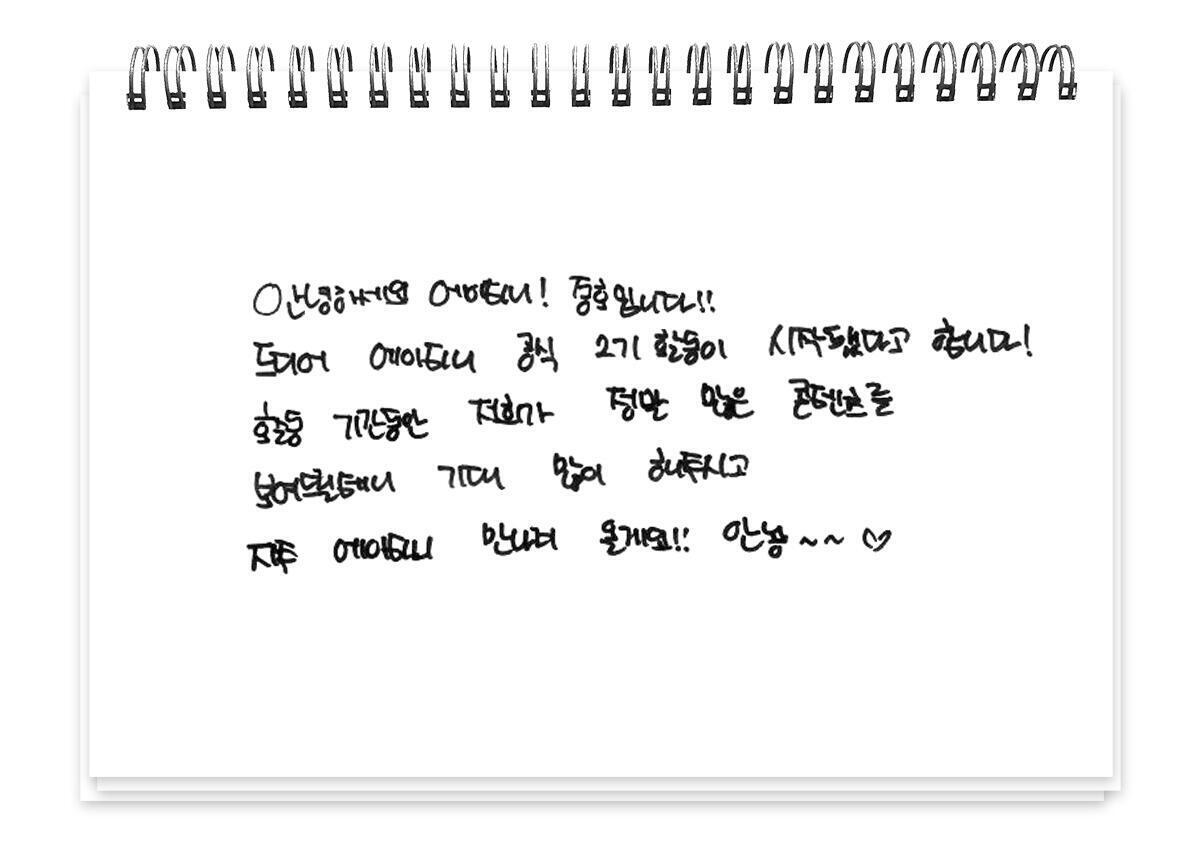 안녕하세요 에이티니! 종호입니다!!
드디어 에이티니 공식 2기 활동이 시작됐다고 합니다!
활동 기간동안 저희가 정말 많은 콘텐츠를
보여드릴테니 기대 많이 해주시고
자주 에이티니 만나러 올게요!! 안뇽~~♡